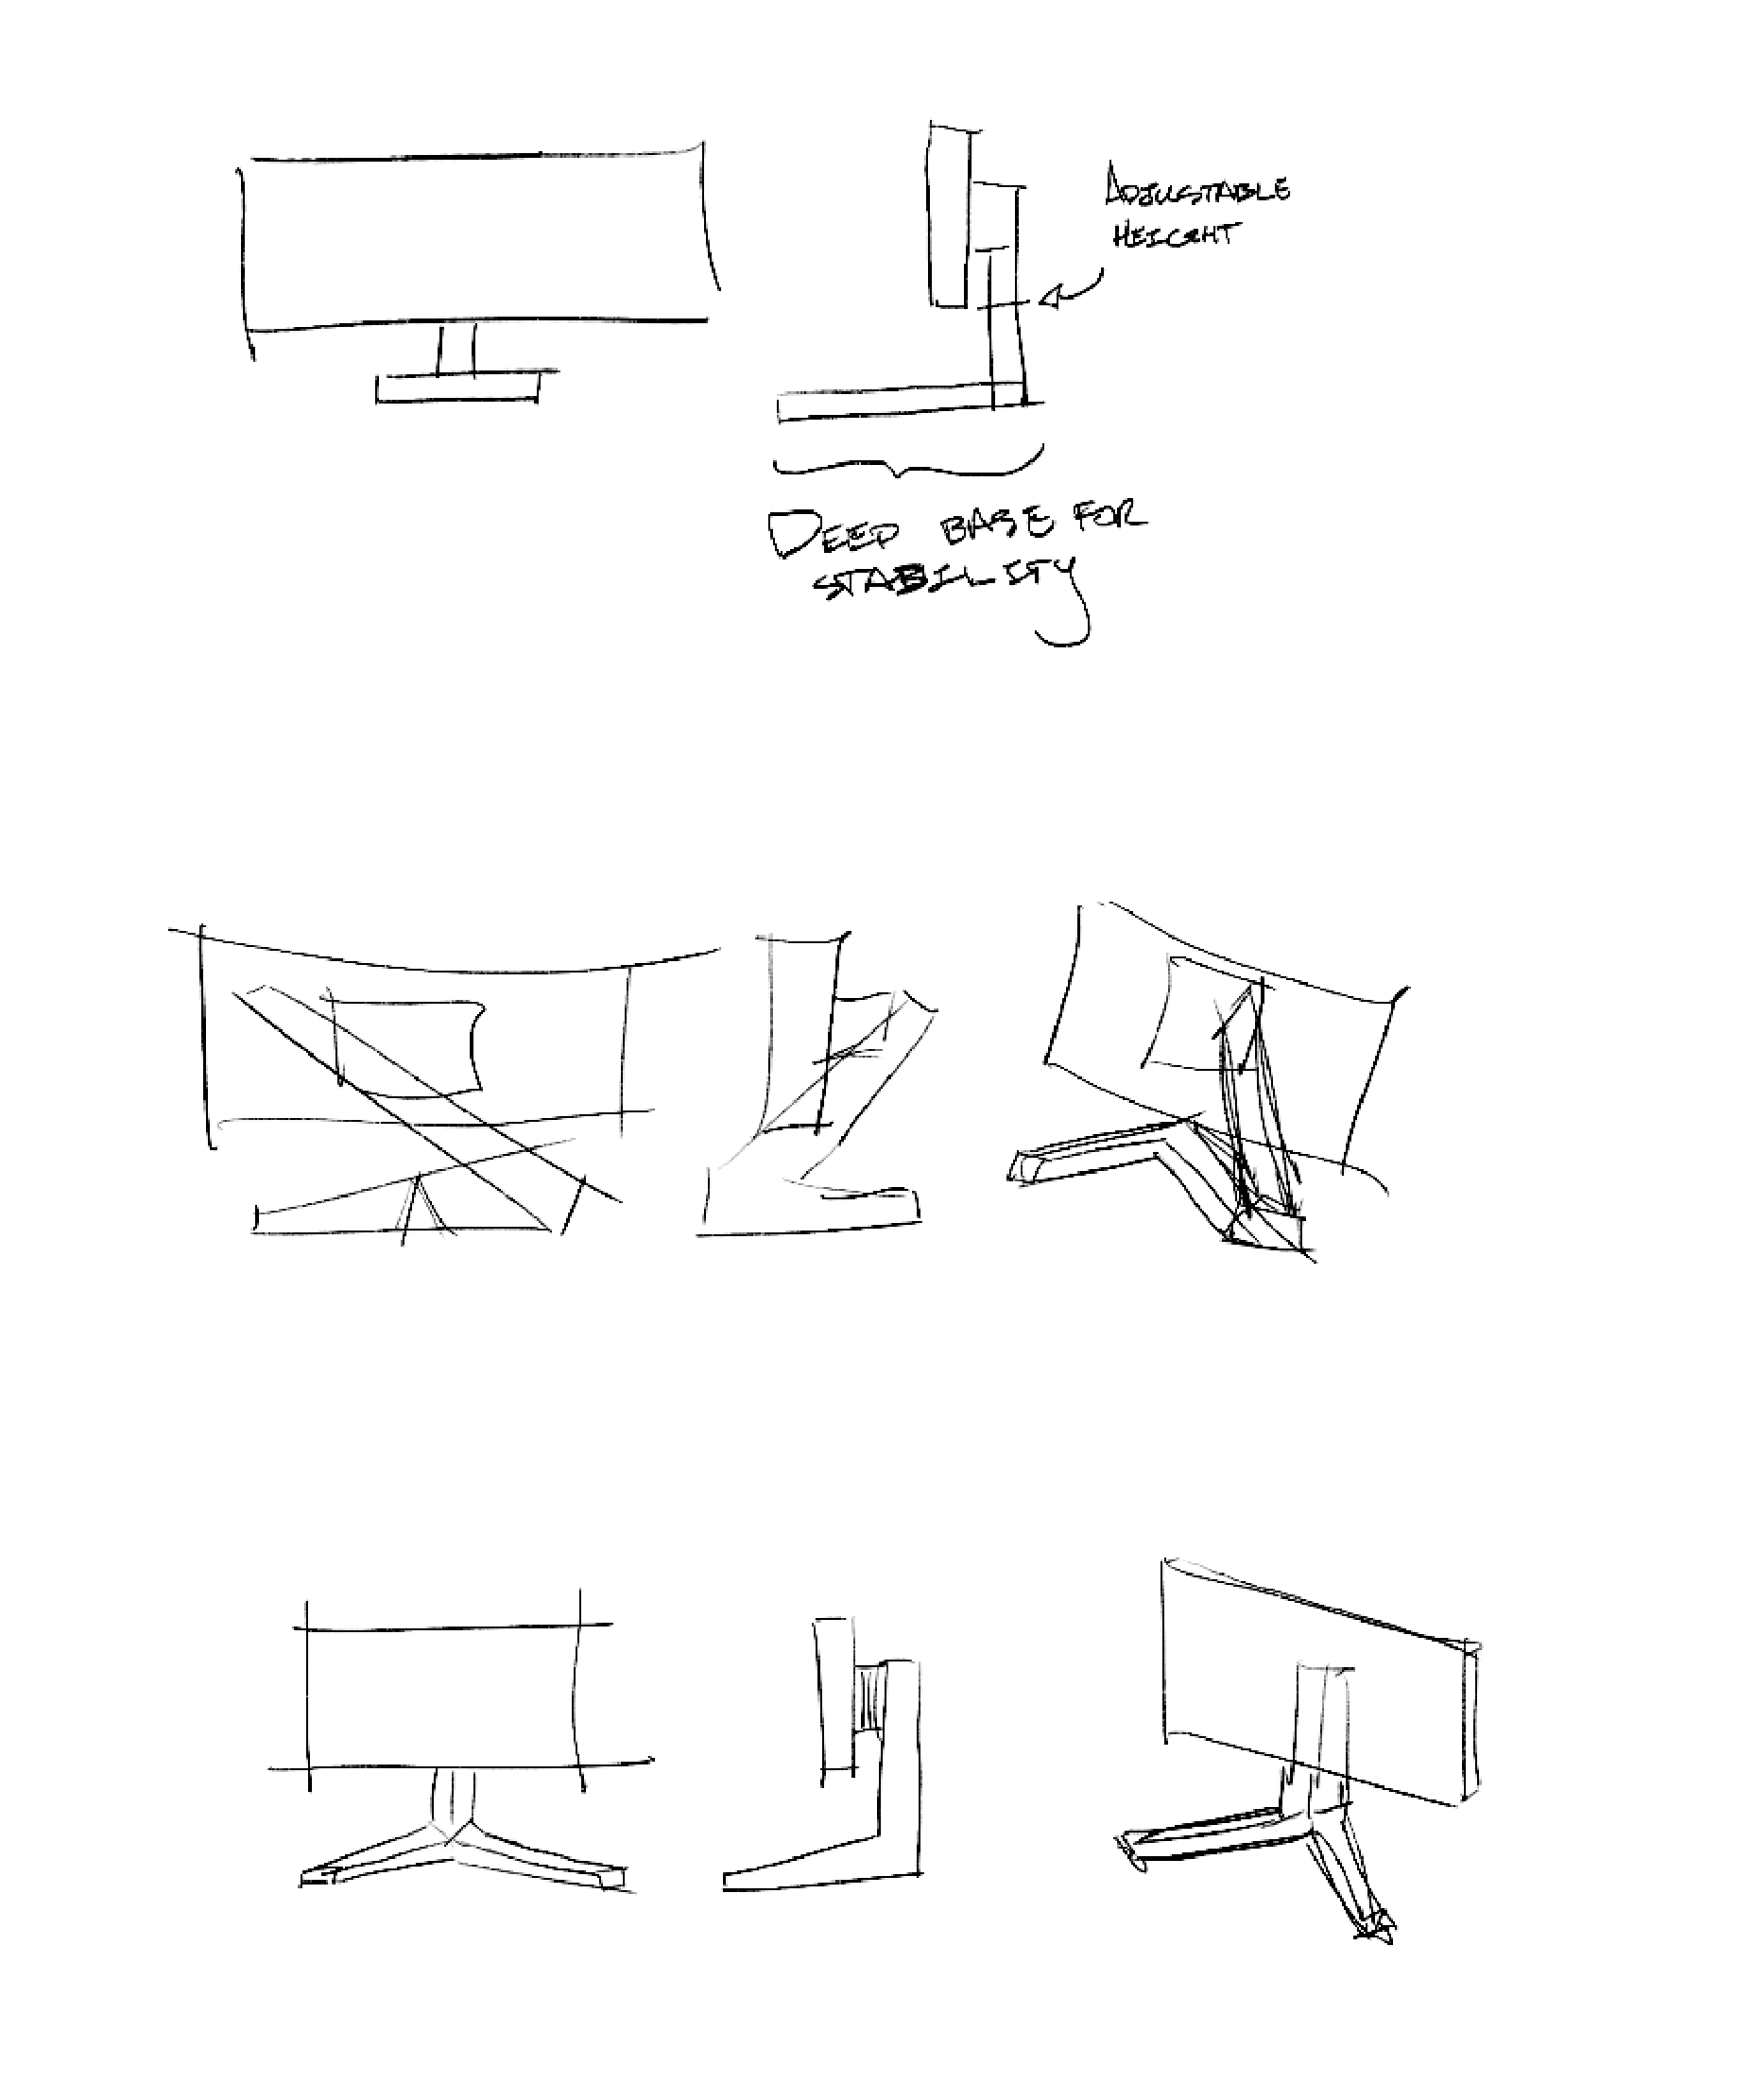 ADJUSTABLE
HEIGHT
DEEP BASE FOR
STABILITY